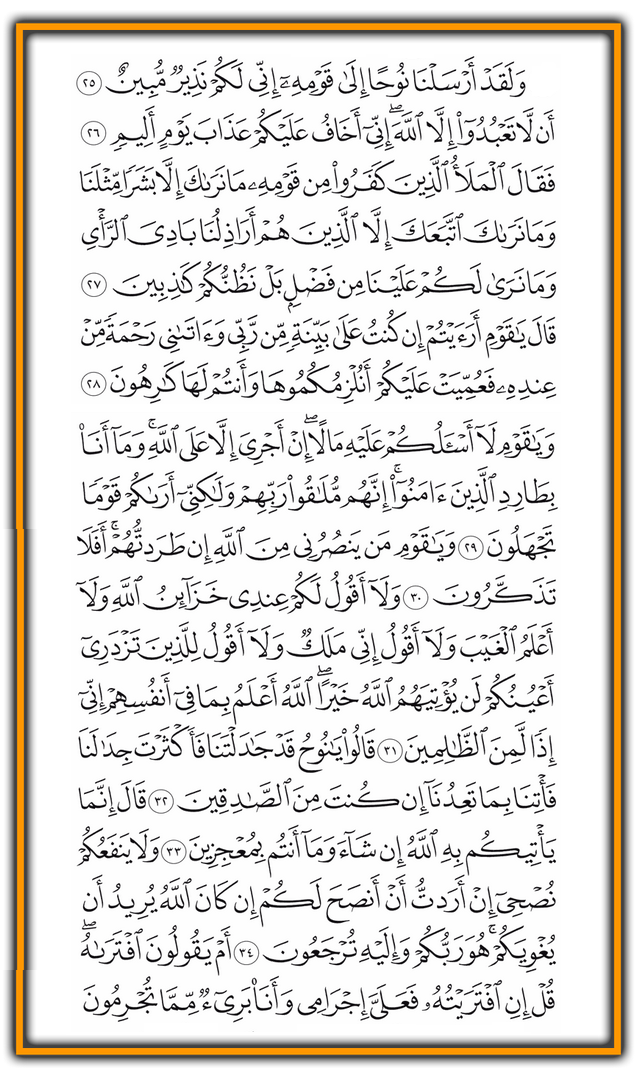 وَلَقَدْ أَرْسَلْنَا نُوحًا إِلَىٰ قَوْمِهِۦٓ إِنِّى لَكُمْ نَذِيرٌ مُّبِينٌ ٢٥
أَن لَّا تَعْبُدُوٓا۟ إِلَّا ٱللَّهَ ۖ إِنِّىٓ أَخَافُ عَلَيْكُمْ عَذَابَ يَوْمٍ أَلِيمٍ ٢٦
فَقَالَ ٱلْمَلَأُ ٱلَّذِينَ كَفَرُوا۟ مِن قَوْمِهِۦ مَا نَرَىٰكَ إِلَّا بَشَرًا مِّثْلَنَا
وَمَا نَرَىٰكَ ٱتَّبَعَكَ إِلَّا ٱلَّذِينَ هُمْ أَرَاذِلُنَا بَادِىَ ٱلرَّأْىِ
وَمَا نَرَىٰ لَكُمْ عَلَيْنَا مِن فَضْلٍۭ بَلْ نَظُنُّكُمْ كَٰذِبِينَ ٢٧
قَالَ يَٰقَوْمِ أَرَءَيْتُمْ إِن كُنتُ عَلَىٰ بَيِّنَةٍ مِّن رَّبِّى وَءَاتَىٰنِى رَحْمَةً مِّنْ
عِندِهِۦ فَعُمِّيَتْ عَلَيْكُمْ أَنُلْزِمُكُمُوهَا وَأَنتُمْ لَهَا كَٰرِهُونَ ٢٨
وَيَٰقَوْمِ لَآ أَسْـَٔلُكُمْ عَلَيْهِ مَالًا ۖ إِنْ أَجْرِىَ إِلَّا عَلَى ٱللَّهِ ۚ وَمَآ أَنَا۠
بِطَارِدِ ٱلَّذِينَ ءَامَنُوٓا۟ ۚ إِنَّهُم مُّلَٰقُوا۟ رَبِّهِمْ وَلَٰكِنِّىٓ أَرَىٰكُمْ قَوْمًا
تَجْهَلُونَ ٢٩ وَيَٰقَوْمِ مَن يَنصُرُنِى مِنَ ٱللَّهِ إِن طَرَدتُّهُمْ ۚ أَفَلَا
تَذَكَّرُونَ ٣٠ وَلَآ أَقُولُ لَكُمْ عِندِى خَزَآئِنُ ٱللَّهِ وَلَآ
أَعْلَمُ ٱلْغَيْبَ وَلَآ أَقُولُ إِنِّى مَلَكٌ وَلَآ أَقُولُ لِلَّذِينَ تَزْدَرِىٓ
أَعْيُنُكُمْ لَن يُؤْتِيَهُمُ ٱللَّهُ خَيْرًا ۖ ٱللَّهُ أَعْلَمُ بِمَا فِىٓ أَنفُسِهِمْ ۖ إِنِّىٓ
إِذًا لَّمِنَ ٱلظَّٰلِمِينَ ٣١ قَالُوا۟ يَٰنُوحُ قَدْ جَٰدَلْتَنَا فَأَكْثَرْتَ جِدَٰلَنَا
فَأْتِنَا بِمَا تَعِدُنَآ إِن كُنتَ مِنَ ٱلصَّٰدِقِينَ ٣٢ قَالَ إِنَّمَا
يَأْتِيكُم بِهِ ٱللَّهُ إِن شَآءَ وَمَآ أَنتُم بِمُعْجِزِينَ ٣٣ وَلَا يَنفَعُكُمْ
نُصْحِىٓ إِنْ أَرَدتُّ أَنْ أَنصَحَ لَكُمْ إِن كَانَ ٱللَّهُ يُرِيدُ أَن
يُغْوِيَكُمْ ۚ هُوَ رَبُّكُمْ وَإِلَيْهِ تُرْجَعُونَ ٣٤ أَمْ يَقُولُونَ ٱفْتَرَىٰهُ ۖ
قُلْ إِنِ ٱفْتَرَيْتُهُۥ فَعَلَىَّ إِجْرَامِى وَأَنَا۠ بَرِىٓءٌ مِّمَّا تُجْرِمُونَ